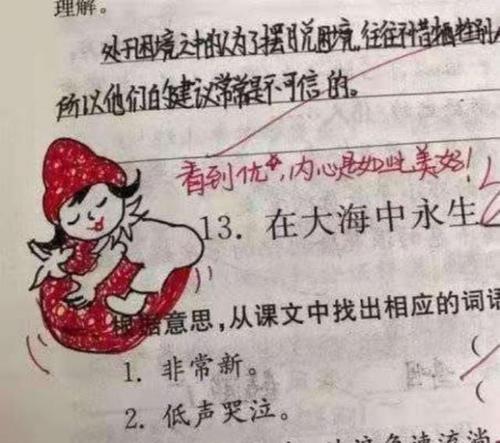 理解。
处于困境之中的人为了摆脱困境,往往不惜牺牲别人
所以他们的建议常常是不可信的。
看到优,内心是如此美好!
13. 在大海中永生
根据意思,从课文中找出相应的词语
(
1. 非常新。
(
2. 低声哭泣。